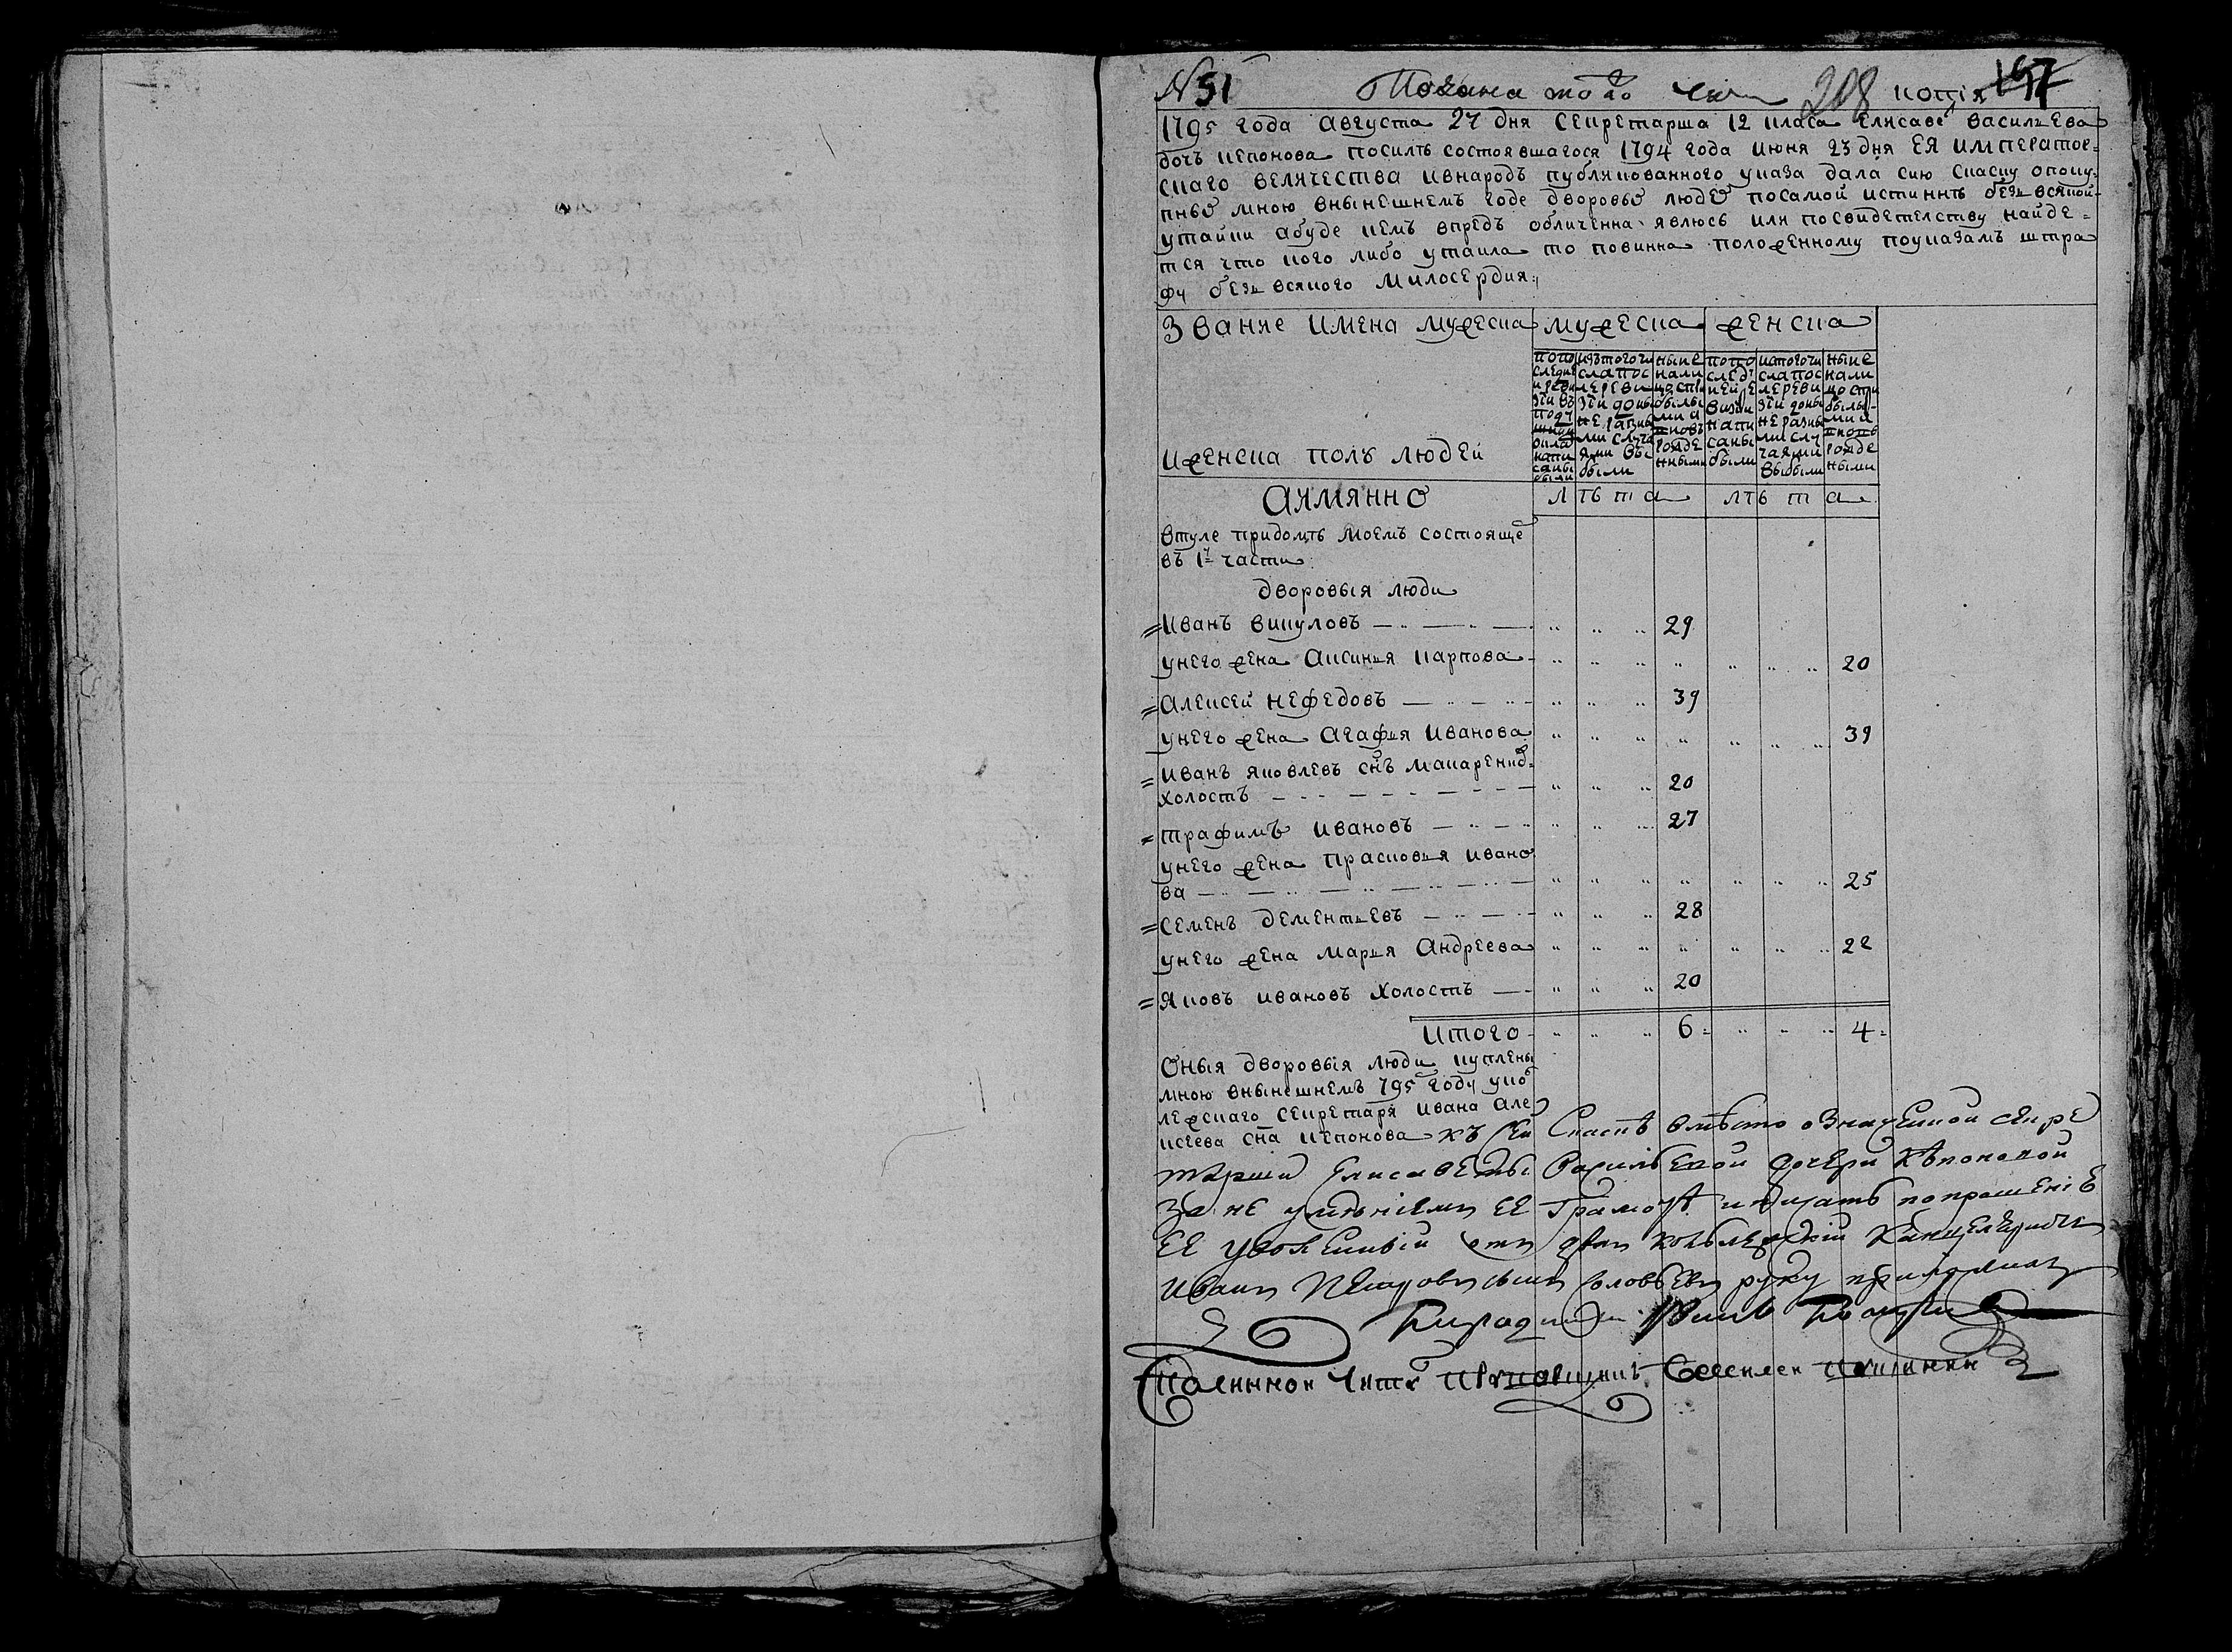 N 51 Подана того числа 208 копiя 197
1795 года августа 27 дня секретарша 12 класа елисаве василъева
дочь кепонова посилѣ состоявшагося 1794 года июня 23 дня ея император=
скаго величества ивнародъ публикованного указа дала сию скаску опоку
пнкы мною внынешнемъ годе дворовы людей посамой истиннѣ безъ всякой
утайки абуде кемъ впредь обличенна явлюсь или посвидетелству найде=
тся что кого либо утаила то повинна положенному поуказамъ штра
фу безъ всякого милосердия
Звание имена мужеска мужеска женска
иженска полъ людей
попо следней ревизiи въ подушной оклад написаны были
изтогочи сла после ревизiи доныне разными случаями выбыли
ныне налицо с прибылыми и вновь рожденными
попо следней ревизiи написаны были
истогочи сла после ревизiи доныне разными случаями выбыли
ныне налицо с прибылыми и вновь рожденными
аимянно лѣта лѣта
втуле придомѣ моемъ состояще
въ 1й части
дворовыя люди
=иванъ викуловъ 29
унего жена аксинья карпова 20
=алексей нефедовъ 39
унего жена агафья иванова 39
=иванъ яковлевъ снъ макаренко
холостъ 20
=трафимъ ивановъ 27
унего жена прасковья ивано
ва 25
=семенъ дементьевъ 28
унего жена марья андреева 22
=яковъ ивановъ холостъ 20
итого 6 4
оныя дворовыя люди куплены
мною внынешнемъ 795 году уко
лежскаго секретаря ивана але
ксеева сна кепонова къ сей скаскѣ вмѣсто означенной секре
тарши елисаветы васильевой дочери кѣпоновой
за не умѣниемъ ее грамотѣ ипи­сать попрошенiю
ее уволенный коллежскiй канцеляристъ
иванъ петровъ сынъ соловьевъ руку приложилъ